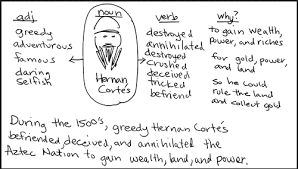 adj noun verb why?
greedy
adventurous
famous
daring
selfish
Hernan
Cortés
destroyed
annihilated
destroyed
crushed
deceived
tricked
befriend
to gain wealth,
power, and riches
for gold, power,
and land
So he could
rule the land
and collect gold
During the 1500's, greedy Hernan Cortés
befriended, deceived, and annihilated the
Aztec Nation to gain wealth, land, and power.